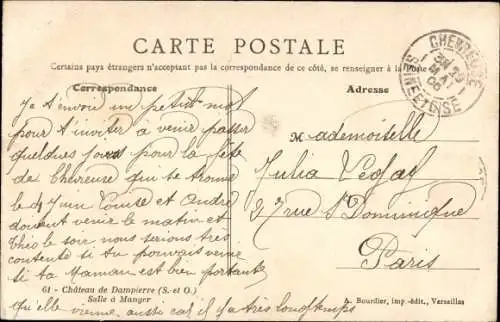 CARTE POSTALE
Certains pays étrangers n'acceptant pas la correspondance de ce côté, se renseigner à la Poste
Correspondance
Adresse
CHEVREUSE
SEINE ET OISE
Je t'envoie un petit mot
pour t'inviter à venir passer
quelques jours pour la fête
de Chevreuse qui se trouve
le 4 Juin Louise et André
doivent venir le matin et
Théo le soir, nous serions très
contente si tu pouvais venir
si ta Maman est bien portante
qu'elle vienne aussi car il y a très longtemps
Mademoiselle
Julia
27 rue St Dominique
Paris
61 - Château de Dampierre (S.-et-O.)
Salle à Manger
A. Bourdier, imp.-édit., Versailles